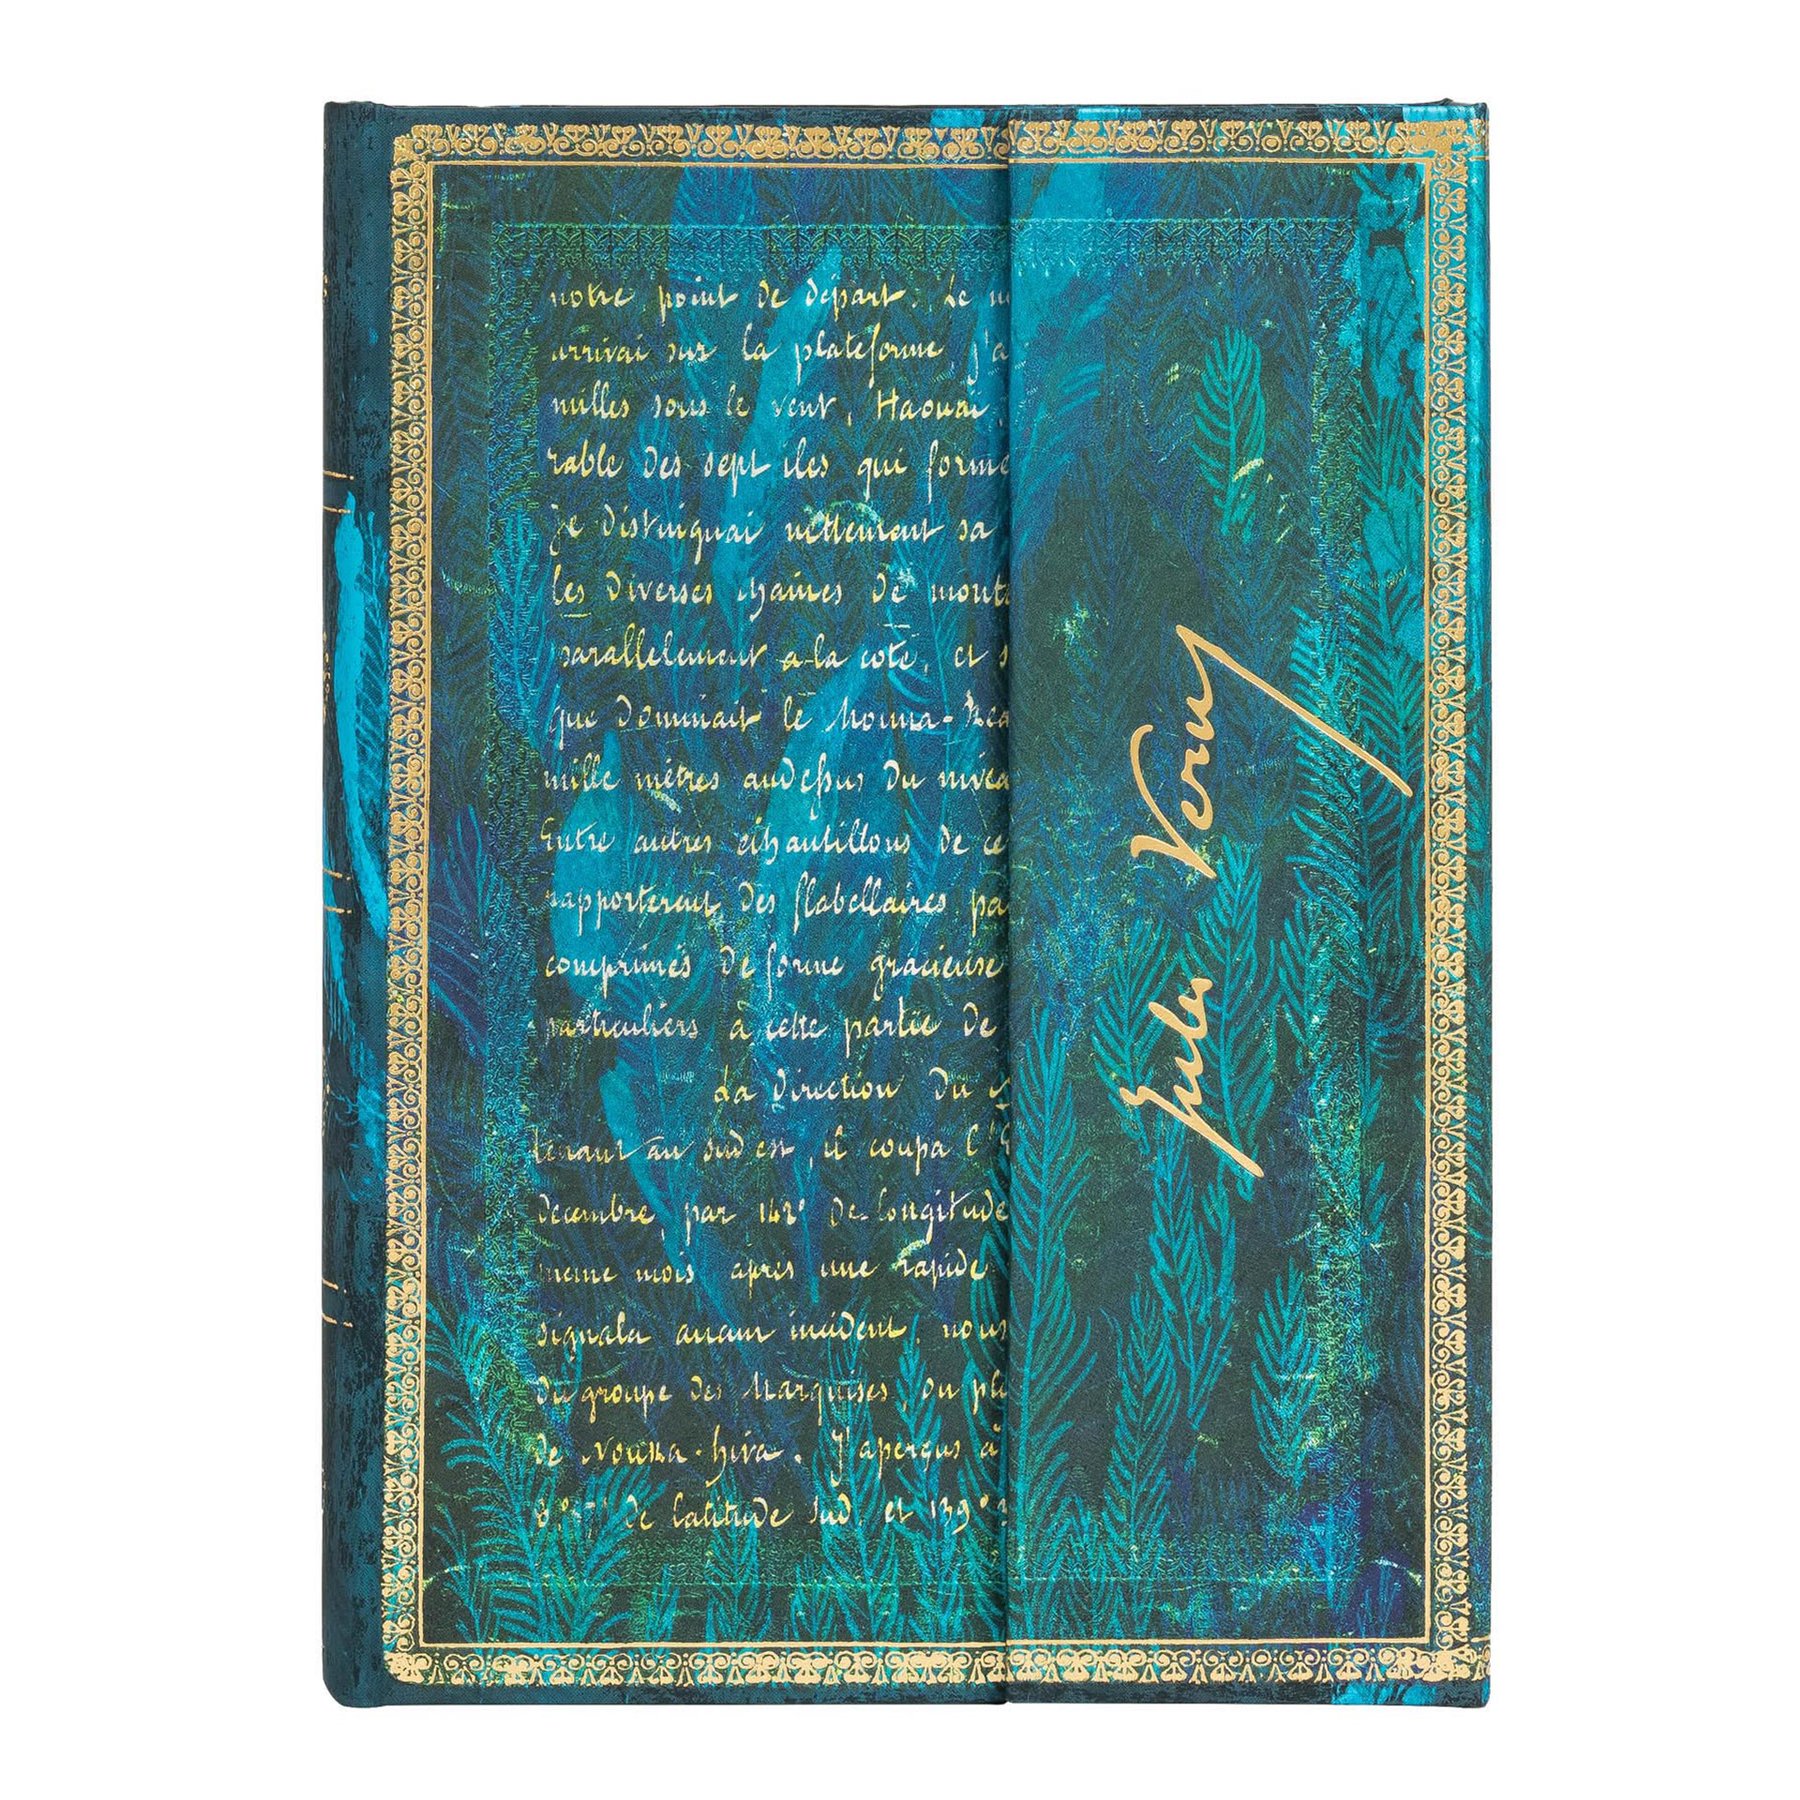 notre point de départ. Le
arrivai sur la plateforme j'a
milles sous le vent, Haouaï,
rable des sept iles qui forme
Je distinguai nettement sa
les diverses chaines de mont
parallelement a la cote, et s
que dominait le Mouna-Kea
mille mètres audessus du nivea
Entre autres echantillons de ce
rapporterent des flabellaires pa
comprimés de forme gracieuse
particuliers a cette partie de
La direction du
tenant au sud est, il coupa l'E
decembre par 142° de longitude
meme mois après une rapide
signala aucun incident, nous
du groupe des Marquises, ou
de Nouka-hiva. J'aperçus à
8°57' de latitude sud, et 139°
Jules Verne